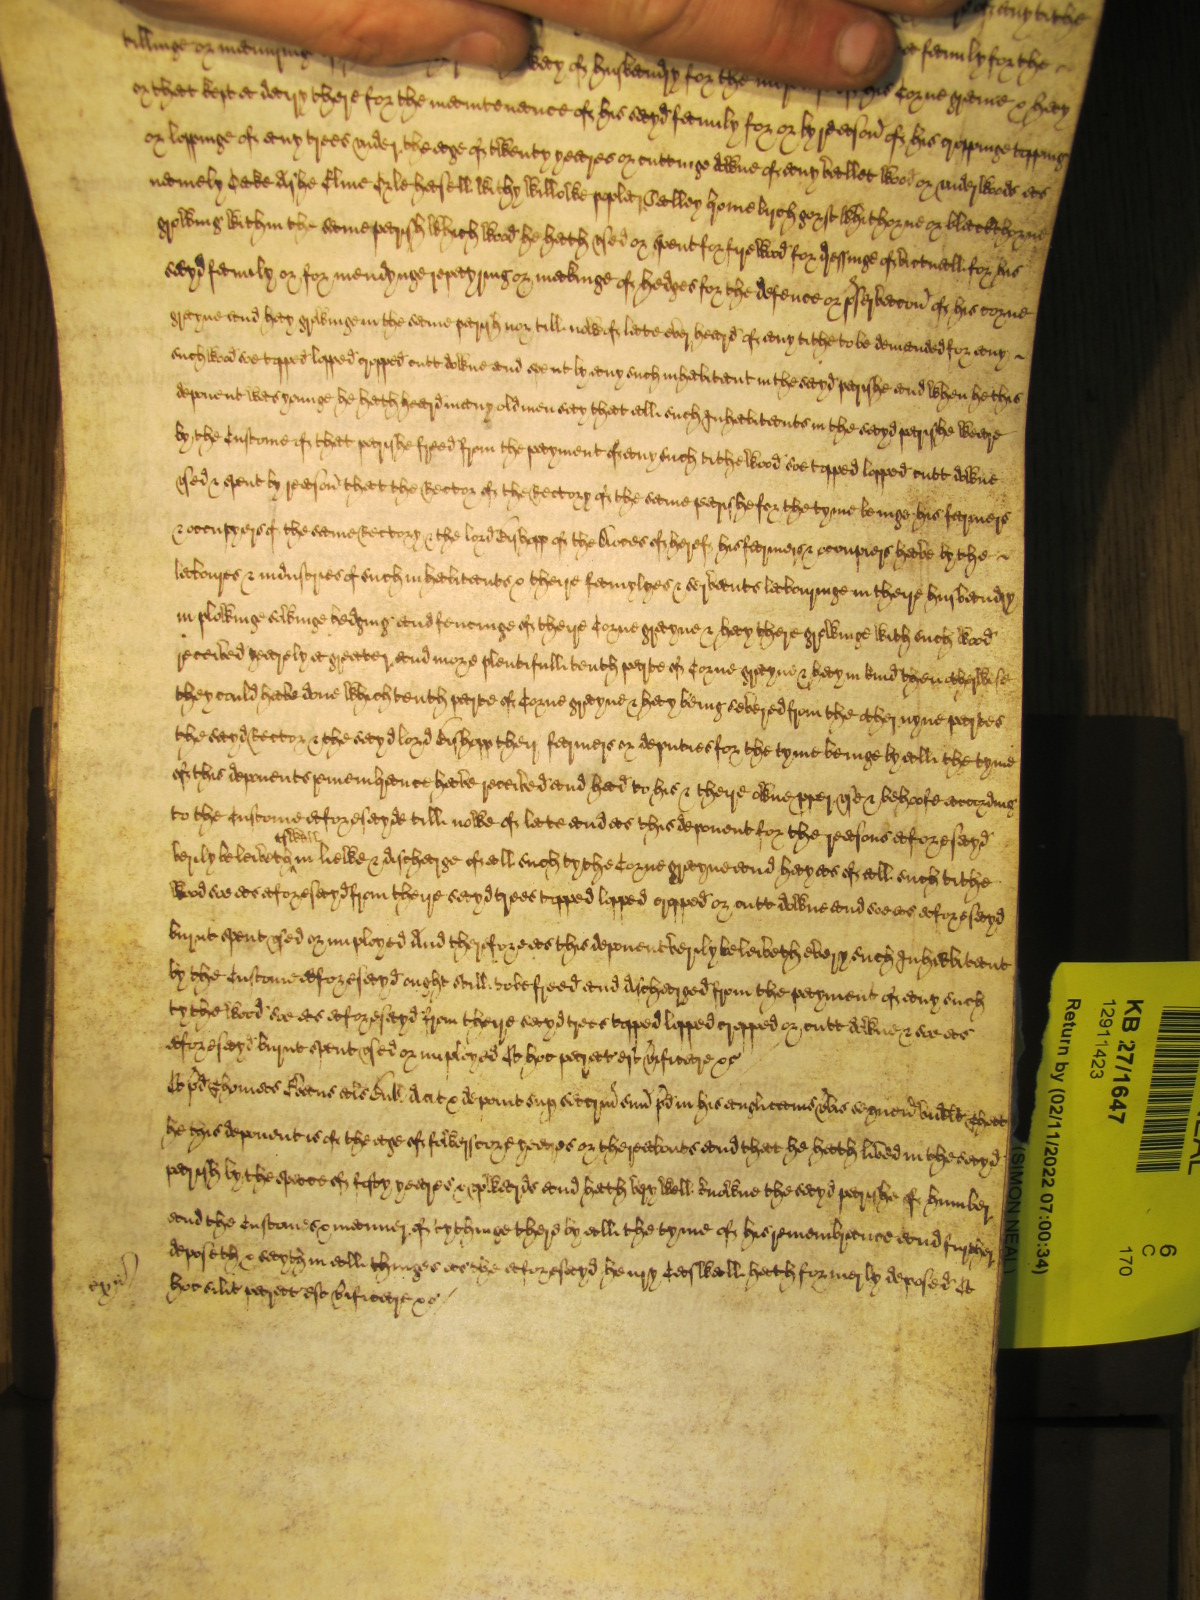 any tithe
tillinge or manuringe family for the
or that kept a dayry there for the maintenance of his sayd family for or by reason of his croppinge topping
way of husbandry for the his Corne grayne & hay
or loppinge of any trees under the age of twenty yeares or cuttinge downe of any vallet wood or underwoods as
namely Oake Ashe Elme Orle hasell withy willowe poplar Salley home birch gorst whithorne or blackthorne
growing within the same parish which wood he hath used or spent for firewood for dressinge of victuall for his
sayd family or for mendynge repayring or makinge of hedges for the defence or pservacon of his corne
grayne and hay growinge in the same parish nor till now of late ever heard of any tithe to be demanded for any
such wood soe topped lopped cropped cutt downe and spent by any such inhabitant in the sayd parishe and when he this
deponent was younge he hath heard many old men say that all such Inhabitants in the sayd parishe weare
by the Custome of that parishe freed from the payment of any such tithe wood soe topped lopped cutt downe
used & spent by reason that the Rector of the Rectory of the same parishe for the tyme beinge his farmers
& occupyers of the same Rectory & the lord Bishopp of the dioces of heref his farmers & occupiers have by the
labours & industries of such inhabitants & theire famylyes & servants labouringe in theire husbandry
in plowinge sowinge hedging and fencinge of theire Corne grayne & hay there growinge with such wood
received yearely a greater and more plentifull tenth parte of Corne grayne & hay in kind then otherwise
they could have done which tenth parte of Corne grayne & hay being severed from the other nyne partes
the sayd Rector & the sayd lord Bishopp their farmers or deputies for the tyme beinge by all the tyme
of this deponents remembrance have received and had to his & theire owne pper use & behoofe according
to the Custome aforesayde till nowe of late and as this deponent for the reasons aforesayd
verily beleiveth aswell in liewe & discharge of all such tythe Corne grayne and hay as of all such tithe
wood soe as aforesayd from theire sayd trees topped lopped cropped or cutt downe and soe as aforesayd
burnt spent used or imployed And therefore as this deponent verily beleiveth every such Inhabitant
by the Custome aforesayd ought still to be freed and discharged from the payment of any such
tythe wood soe as aforesayd from theire sayd trees topped lopped cropped or cutt downe & soe as
aforesayd burnt spent used or imployed Et hoc parat est verificare &c
Et pd Thomas als dicit & deponit sup sacrm suu pd in his anglicanis verbis sequen videlt That
he this deponent is of the age of fowerscore yeares or thereabouts and that he hath lived in the sayd
parish by the space of fifty yeares & upwards and hath very well knowne the sayd parishe of humber
and the Customes & manner of tythinge there by all the tyme of his remembrance and further
deposeth & sayth in all thinges as the aforesayd henry Caswall hath formerly deposed Et
hoc silit parat est verificare &c
exd
KB 27/1647
12911423
Return by (02/11/2022 07:00:34)
(SIMON NEAL)
6
C
170